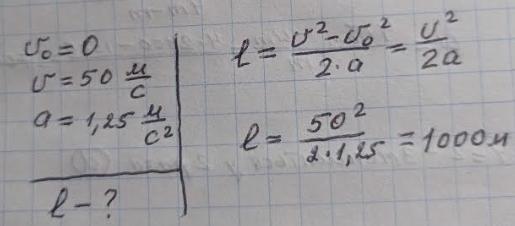 υ₀ = 0
υ = 50 м/с
a = 1,25 м/с²
ℓ - ?
ℓ = (υ² - υ₀²)/(2·a) = υ²/(2a)
ℓ = 50²/(2·1,25) = 1000м